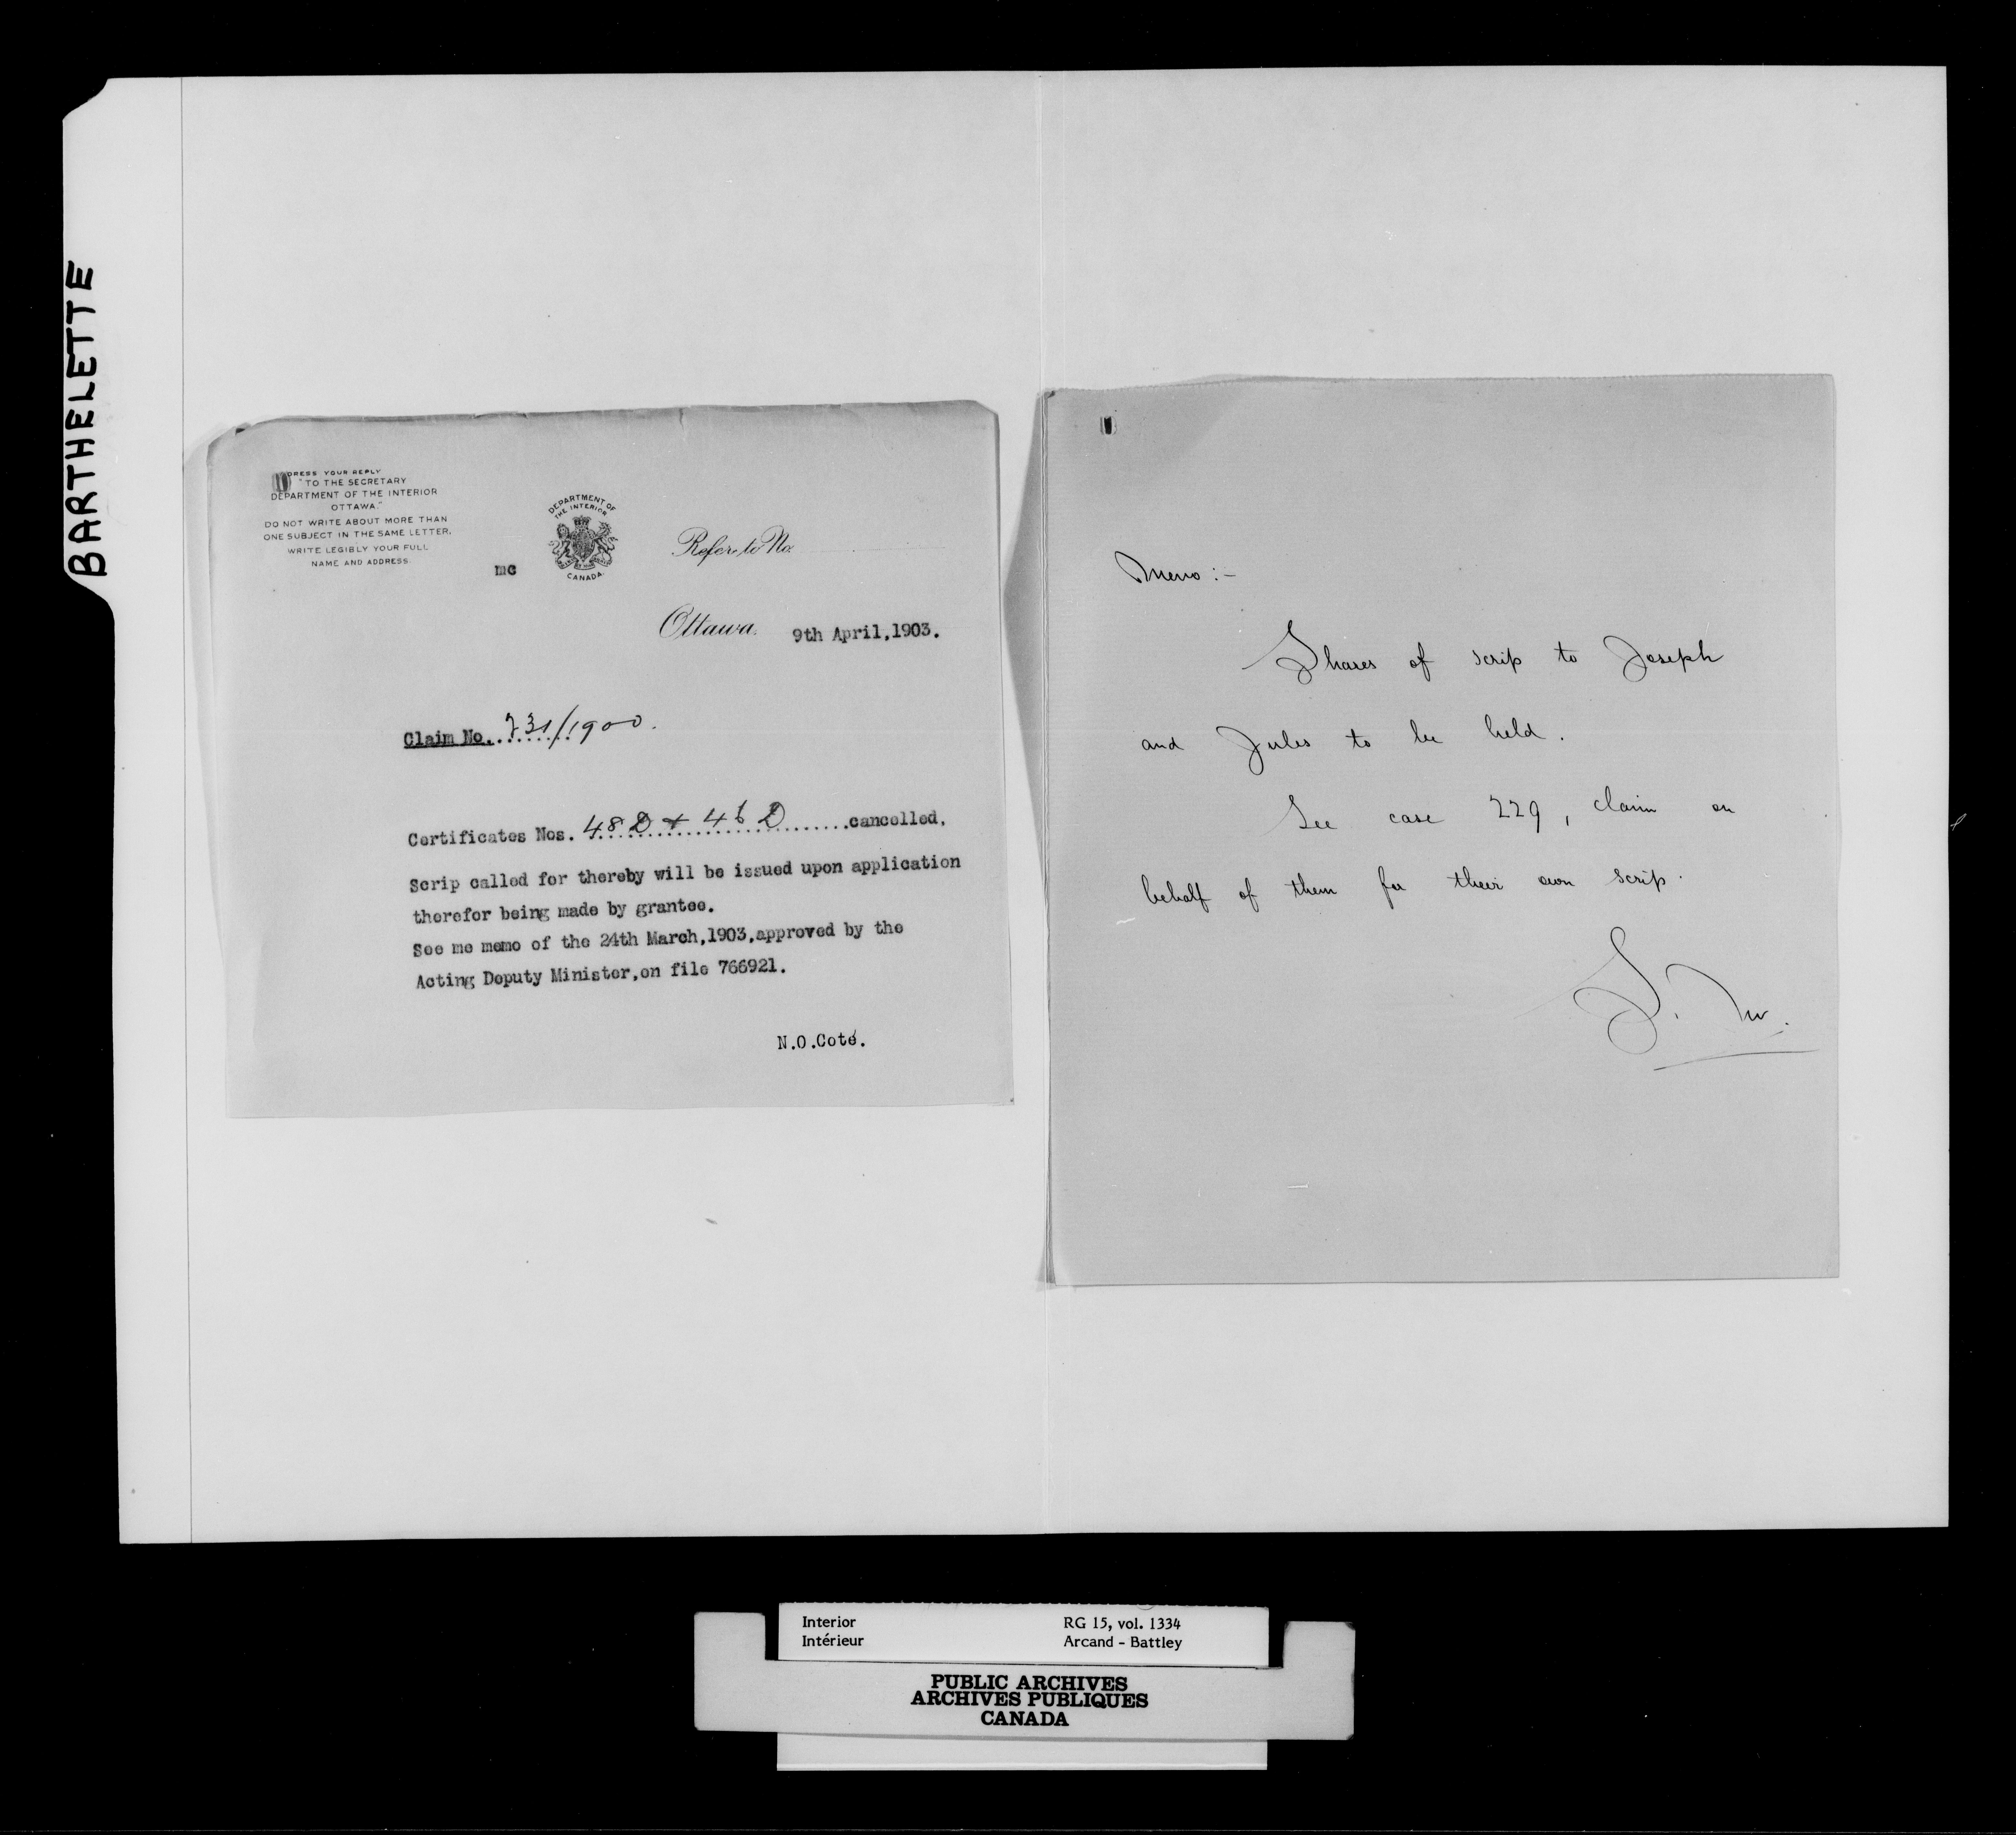 BARTHELETTE
DRESS YOUR REPLY
"TO THE SECRETARY
DEPARTMENT OF THE INTERIOR
OTTAWA."
DO NOT WRITE ABOUT MORE THAN
ONE SUBJECT IN THE SAME LETTER,
WRITE LEGIBLY YOUR FULL
NAME AND ADDRESS.
mc
DEPARTMENT OF
THE INTERIOR
CANADA.
Refer to No.
Ottawa. 9th April,1903.
Claim No. 231/1900.
Certificates Nos. 48 D + 46 D cancelled.
Scrip called for thereby will be issued upon application
therefor being made by grantee.
See me memo of the 24th March,1903,approved by the
Acting Deputy Minister,on file 766921.
N.O.Coté.
Memo :-
Shares of scrip to Joseph
and Jules to be held.
See case 229, claim on
behalf of them for their own scrip.
Interior
Intérieur
RG 15, vol. 1334
Arcand - Battley
PUBLIC ARCHIVES
ARCHIVES PUBLIQUES
CANADA